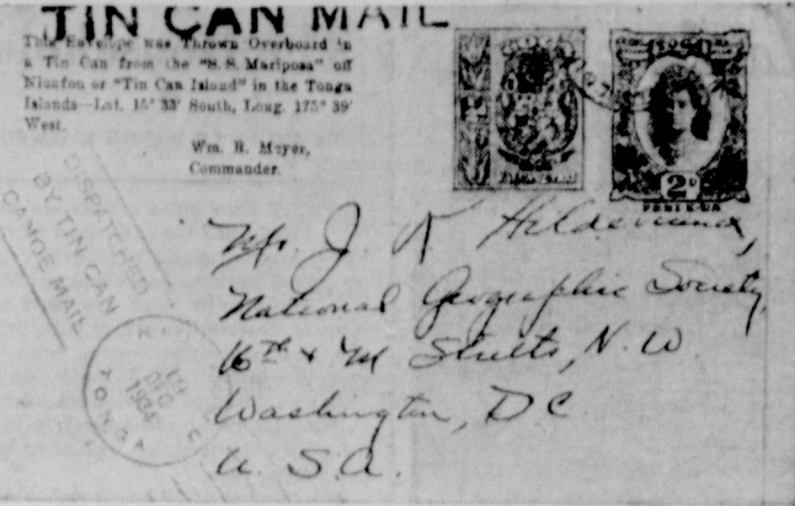 TIN CAN MAIL
This Envelope was Thrown Overboard in
a Tin Can from the "S. S. Mariposa" off
Niuafou or "Tin Can Island" in the Tonga
Islands—Lat. 15° 33' South, Long. 175° 39'
West.
Wm. R. Meyer,
Commander.
TOGA
TOGA
2D
PENI E UA
DISPATCHED
BY TIN CAN
CANOE MAIL
19
DEC
1934
TONGA
Mr. J. R. Hildebrand,
National Geographic Society,
16th & M Streets, N. W.
Washington, D C
U. S. A.